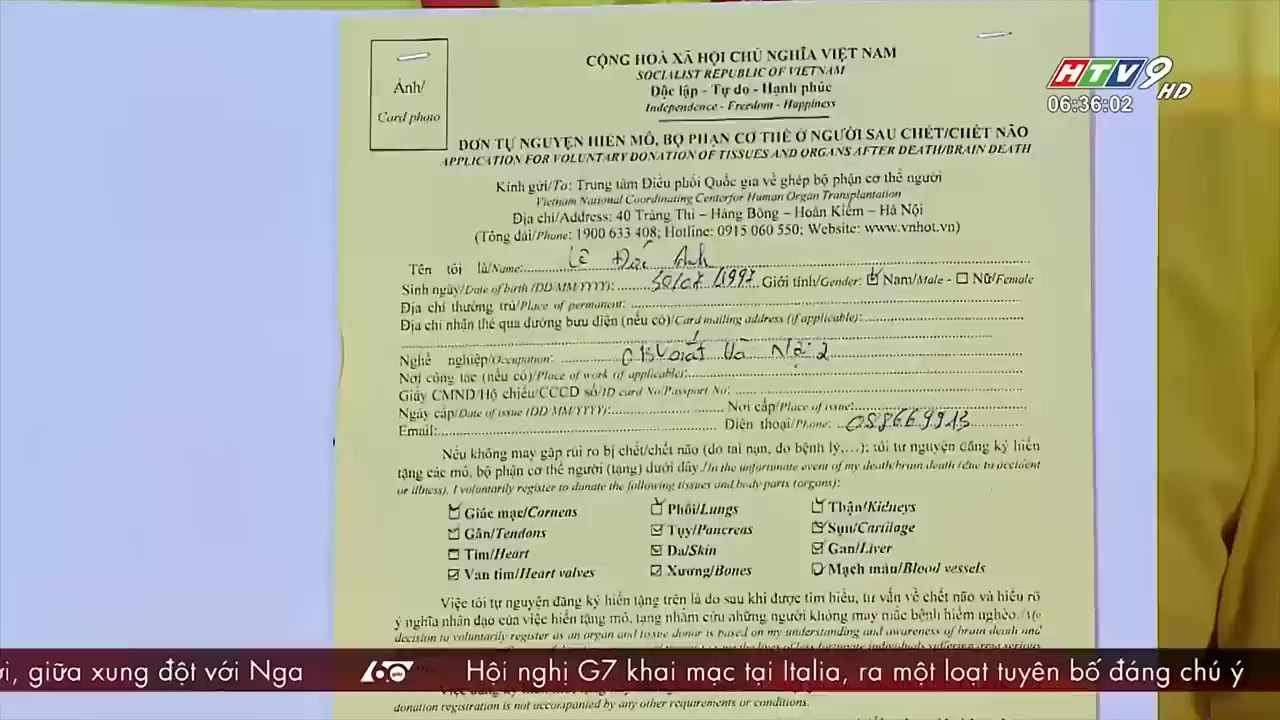 HTV9 HD
06:36:02
Ảnh/
Card photo
CỘNG HOÀ XÃ HỘI CHỦ NGHĨA VIỆT NAM
SOCIALIST REPUBLIC OF VIETNAM
Độc lập - Tự do - Hạnh phúc
Independence - Freedom - Happiness
ĐƠN TỰ NGUYỆN HIẾN MÔ, BỘ PHẬN CƠ THỂ Ở NGƯỜI SAU CHẾT/CHẾT NÃO
APPLICATION FOR VOLUNTARY DONATION OF TISSUES AND ORGANS AFTER DEATH/BRAIN DEATH
Kính gửi/To: Trung tâm Điều phối Quốc gia về ghép bộ phận cơ thể người
Vietnam National Coordinating Centerfor Human Organ Transplantation
Địa chỉ/Address: 40 Tràng Thi – Hàng Bông – Hoàn Kiếm – Hà Nội
(Tổng đài/Phone: 1900 633 408; Hotline: 0915 060 550; Website: www.vnhot.vn)
Tên tôi là/Name: Lê Đức Anh
Sinh ngày/Date of birth (DD/MM/YYYY): /1997 Giới tính/Gender: Nam/Male - Nữ/Female
Địa chỉ thường trú/Place of permanent:
Địa chỉ nhận thẻ qua đường bưu điện (nếu có)/Card mailing address (if applicable):
Nghề nghiệp/Occupation: Hà Nội 2
Nơi công tác (nếu có)/Place of work (if applicable):
Giấy CMND/Hộ chiếu/CCCD số/ID card No/Passport No:
Ngày cấp/Date of issue (DD/MM/YYYY): Nơi cấp/Place of issue:
Email: Điện thoại/Phone: 088669913
Nếu không may gặp rủi ro bị chết/chết não (do tai nạn, do bệnh lý,…); tôi tự nguyện đăng ký hiến
tặng các mô, bộ phận cơ thể người (tạng) dưới đây./In the unfortunate event of my death/brain death (due to accident
or illness), I voluntarily register to donate the following tissues and body parts (organs):
Giác mạc/Corneas Phổi/Lungs Thận/Kidneys
Gân/Tendons Tụy/Pancreas Sụn/Cartilage
Tim/Heart Da/Skin Gan/Liver
Van tim/Heart valves Xương/Bones Mạch máu/Blood vessels
Việc tôi tự nguyện đăng ký hiến tặng trên là do sau khi được tìm hiểu, tư vấn về chết não và hiểu rõ
ý nghĩa nhân đạo của việc hiến tặng mô, tạng nhằm cứu những người không may mắc bệnh hiểm nghèo./My
decision to voluntarily register as an organ and tissue donor is based on my understanding and awareness of brain death and
ơi, giữa xung đột với Nga 60 giây Hội nghị G7 khai mạc tại Italia, ra một loạt tuyên bố đáng chú ý
donation registration is not accorapanied by any other requirements or conditions.